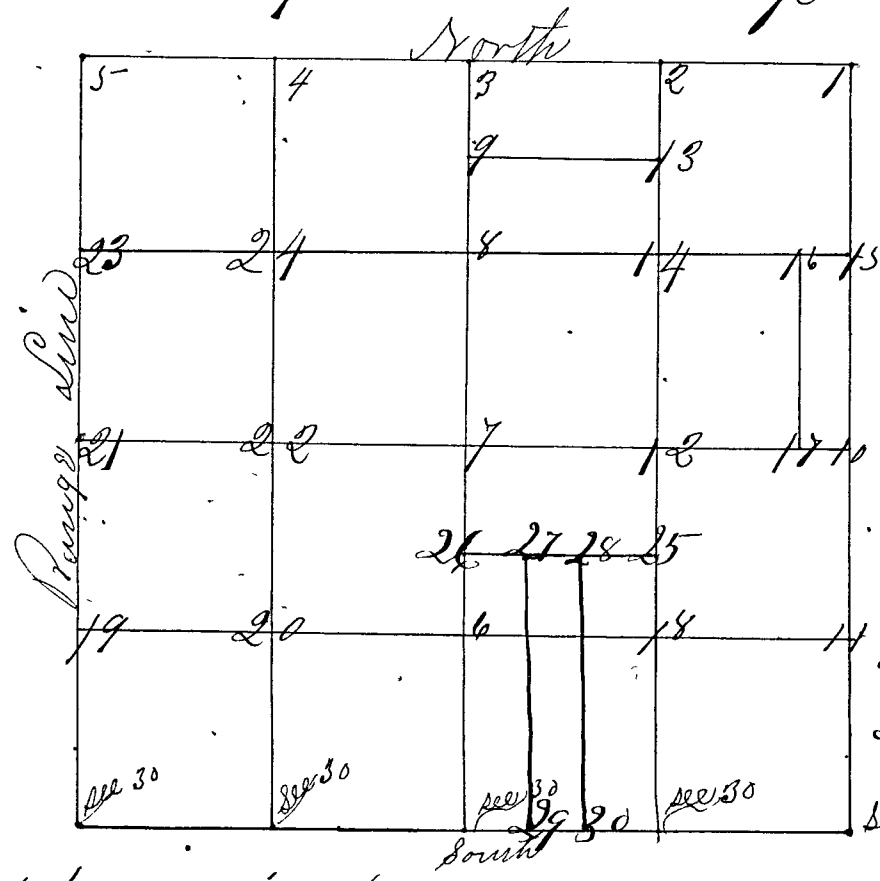 North
5 4 3 2 1
9 13
23 24 8 14 16 15
Range Line
21 22 7 12 17 10
26 27 28 25
19 20 6 18 11
see 30 see 30 see 30 see 30
29 30
South